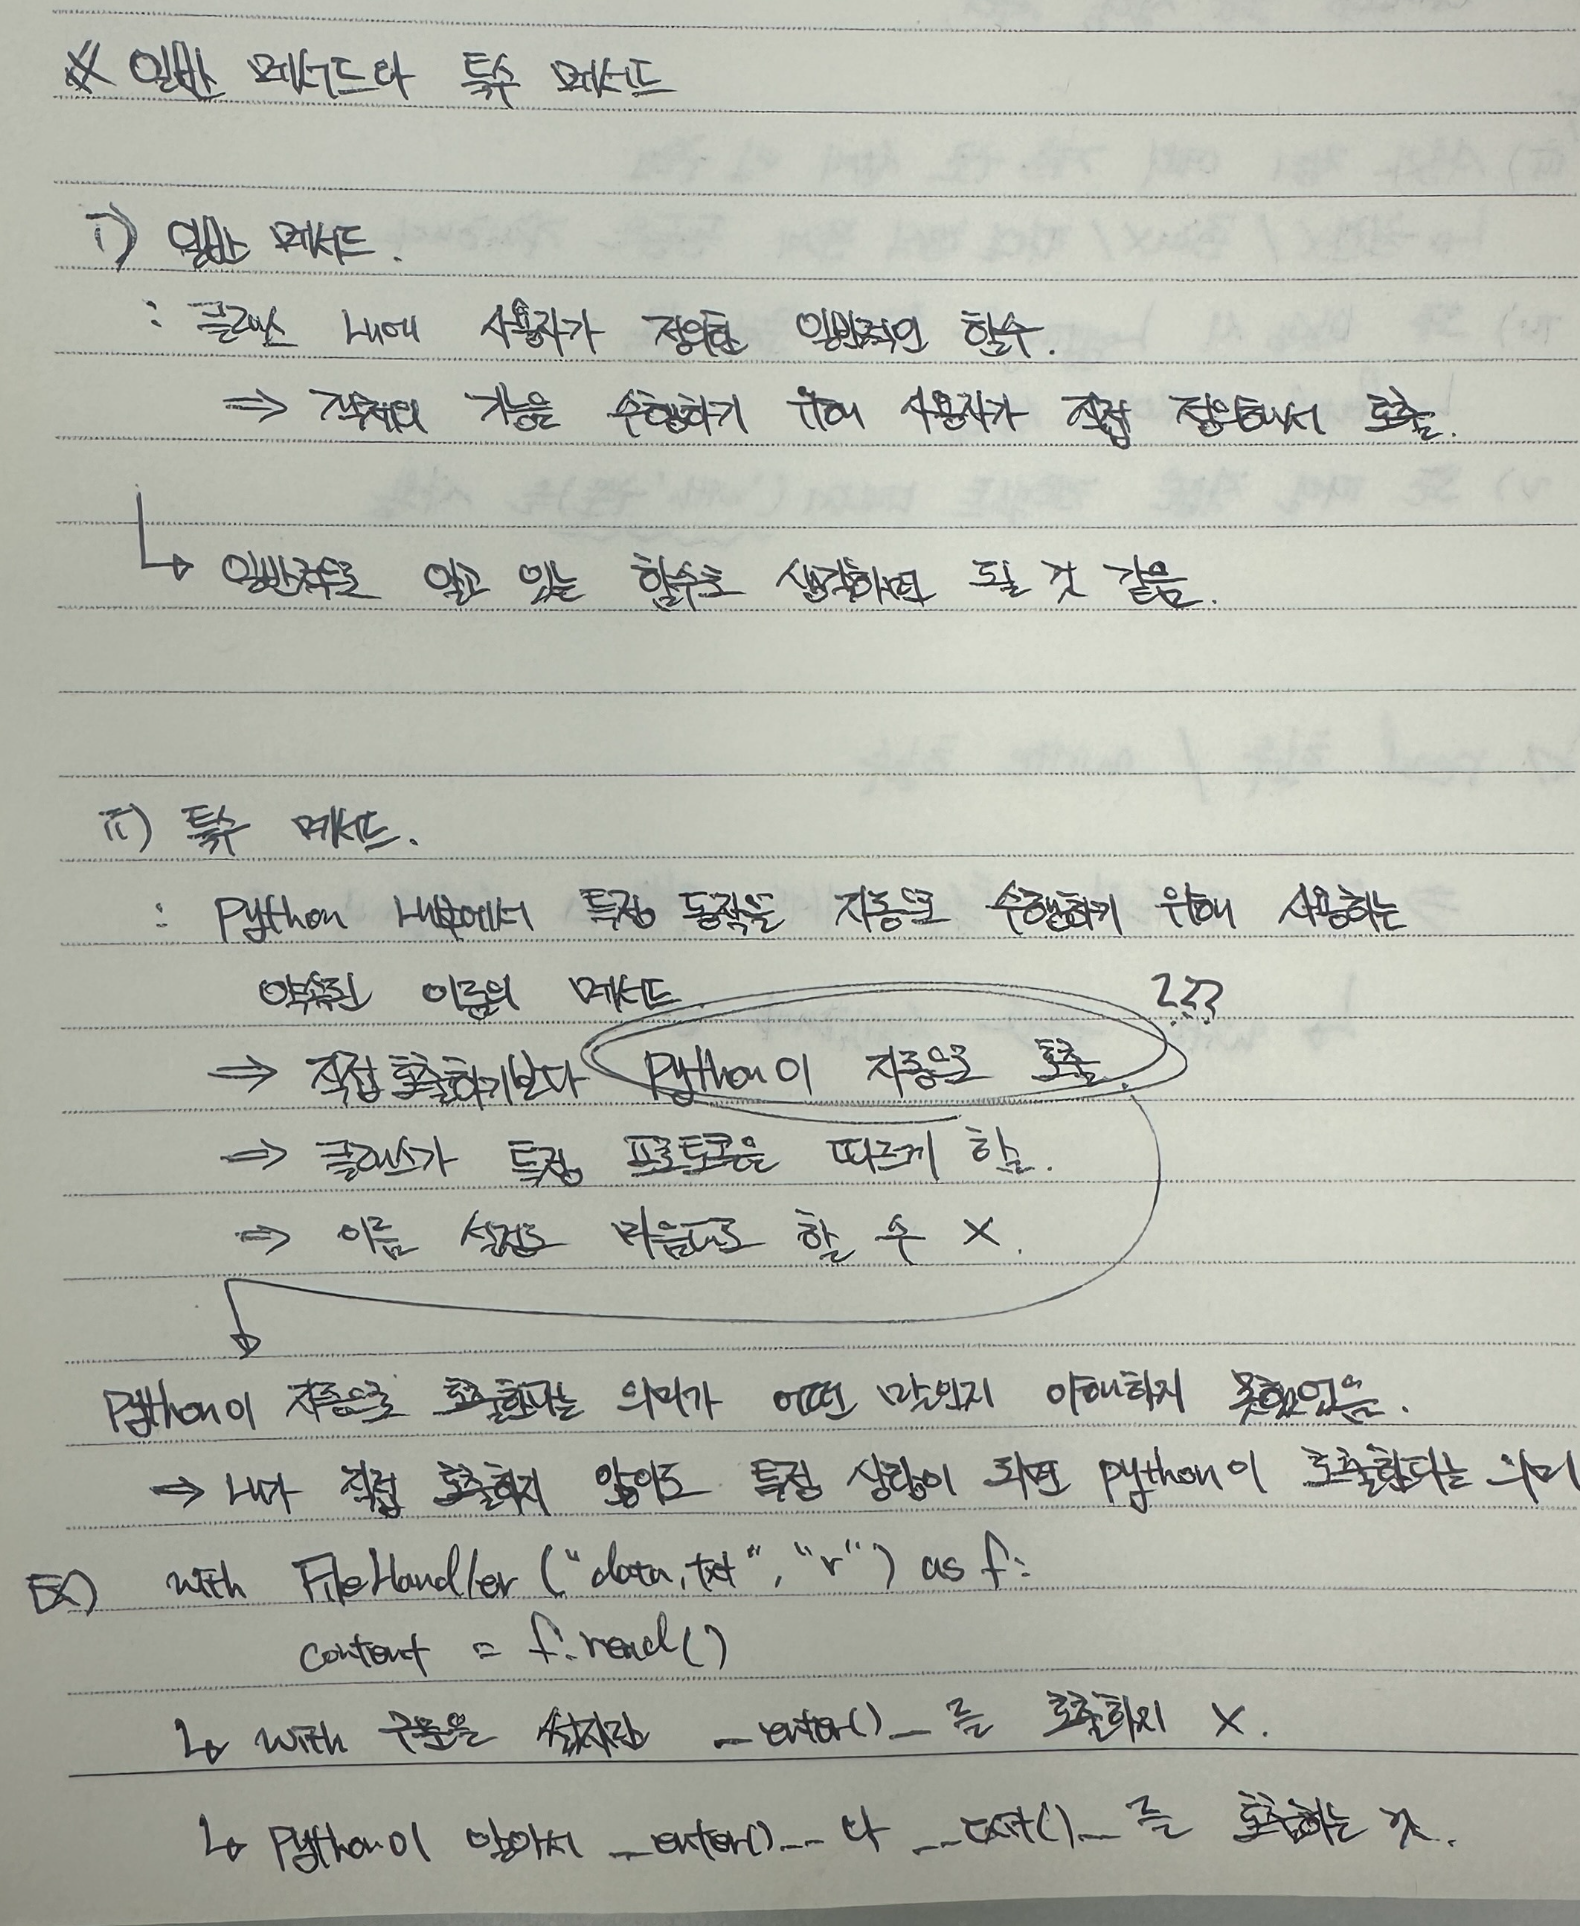 ※ 일반 메서드와 특수 메서드
i) 일반 메서드.
: 클래스 내에 사용자가 정의한 일반적인 함수.
⇒ 객체의 기능을 수행하기 위해 사용자가 직접 정의해서 호출.
↳ 일반적으로 알고 있는 함수로 생각하면 될 것 같음.
ii) 특수 메서드.
: Python 내부에서 특정 동작을 자동으로 수행하기 위해 사용하는
약속된 이름의 메서드. ???
⇒ 직접 호출하기보다 Python이 자동으로 호출.
⇒ 클래스가 특정 프로토콜을 따르게 함.
⇒ 이름 설정도 마음대로 할 수 X.
Python이 자동으로 호출한다는 의미가 어떤 말인지 이해하지 못했었음.
→ 내가 직접 호출하지 않아도 특정 상황이 되면 Python이 호출한다는 의미
EX) with FileHandler ("data.txt", "r") as f:
content = f.read()
↳ with 구문을 썼지만 __enter()__를 호출하지 X.
↳ Python이 알아서 __enter()__ 나 __exit()__를 호출하는 것.